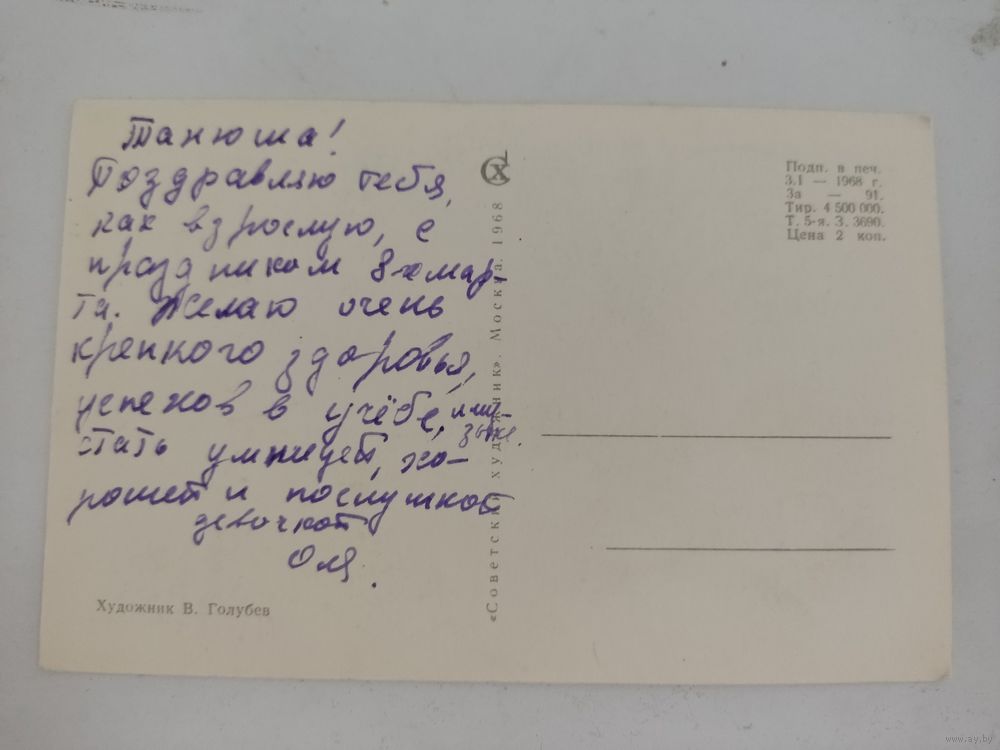 Танюша!
Поздравляю тебя,
как взрослую, с
праздником 8-хмар-
та. Желаю очень
крепкого здоровья,
успехов в учёбе, и му-
зыке.
стать умницей, хо-
рошей и послушной
девочкой
Оля.
Художник В. Голубев
«Советский художник». Москва. 1968
Подп. в печ.
3.1 — 1968 г.
За — 91.
Тир. 4 500 000.
Т. 5-я. З. 3690.
Цена 2 коп.
www.ay.by